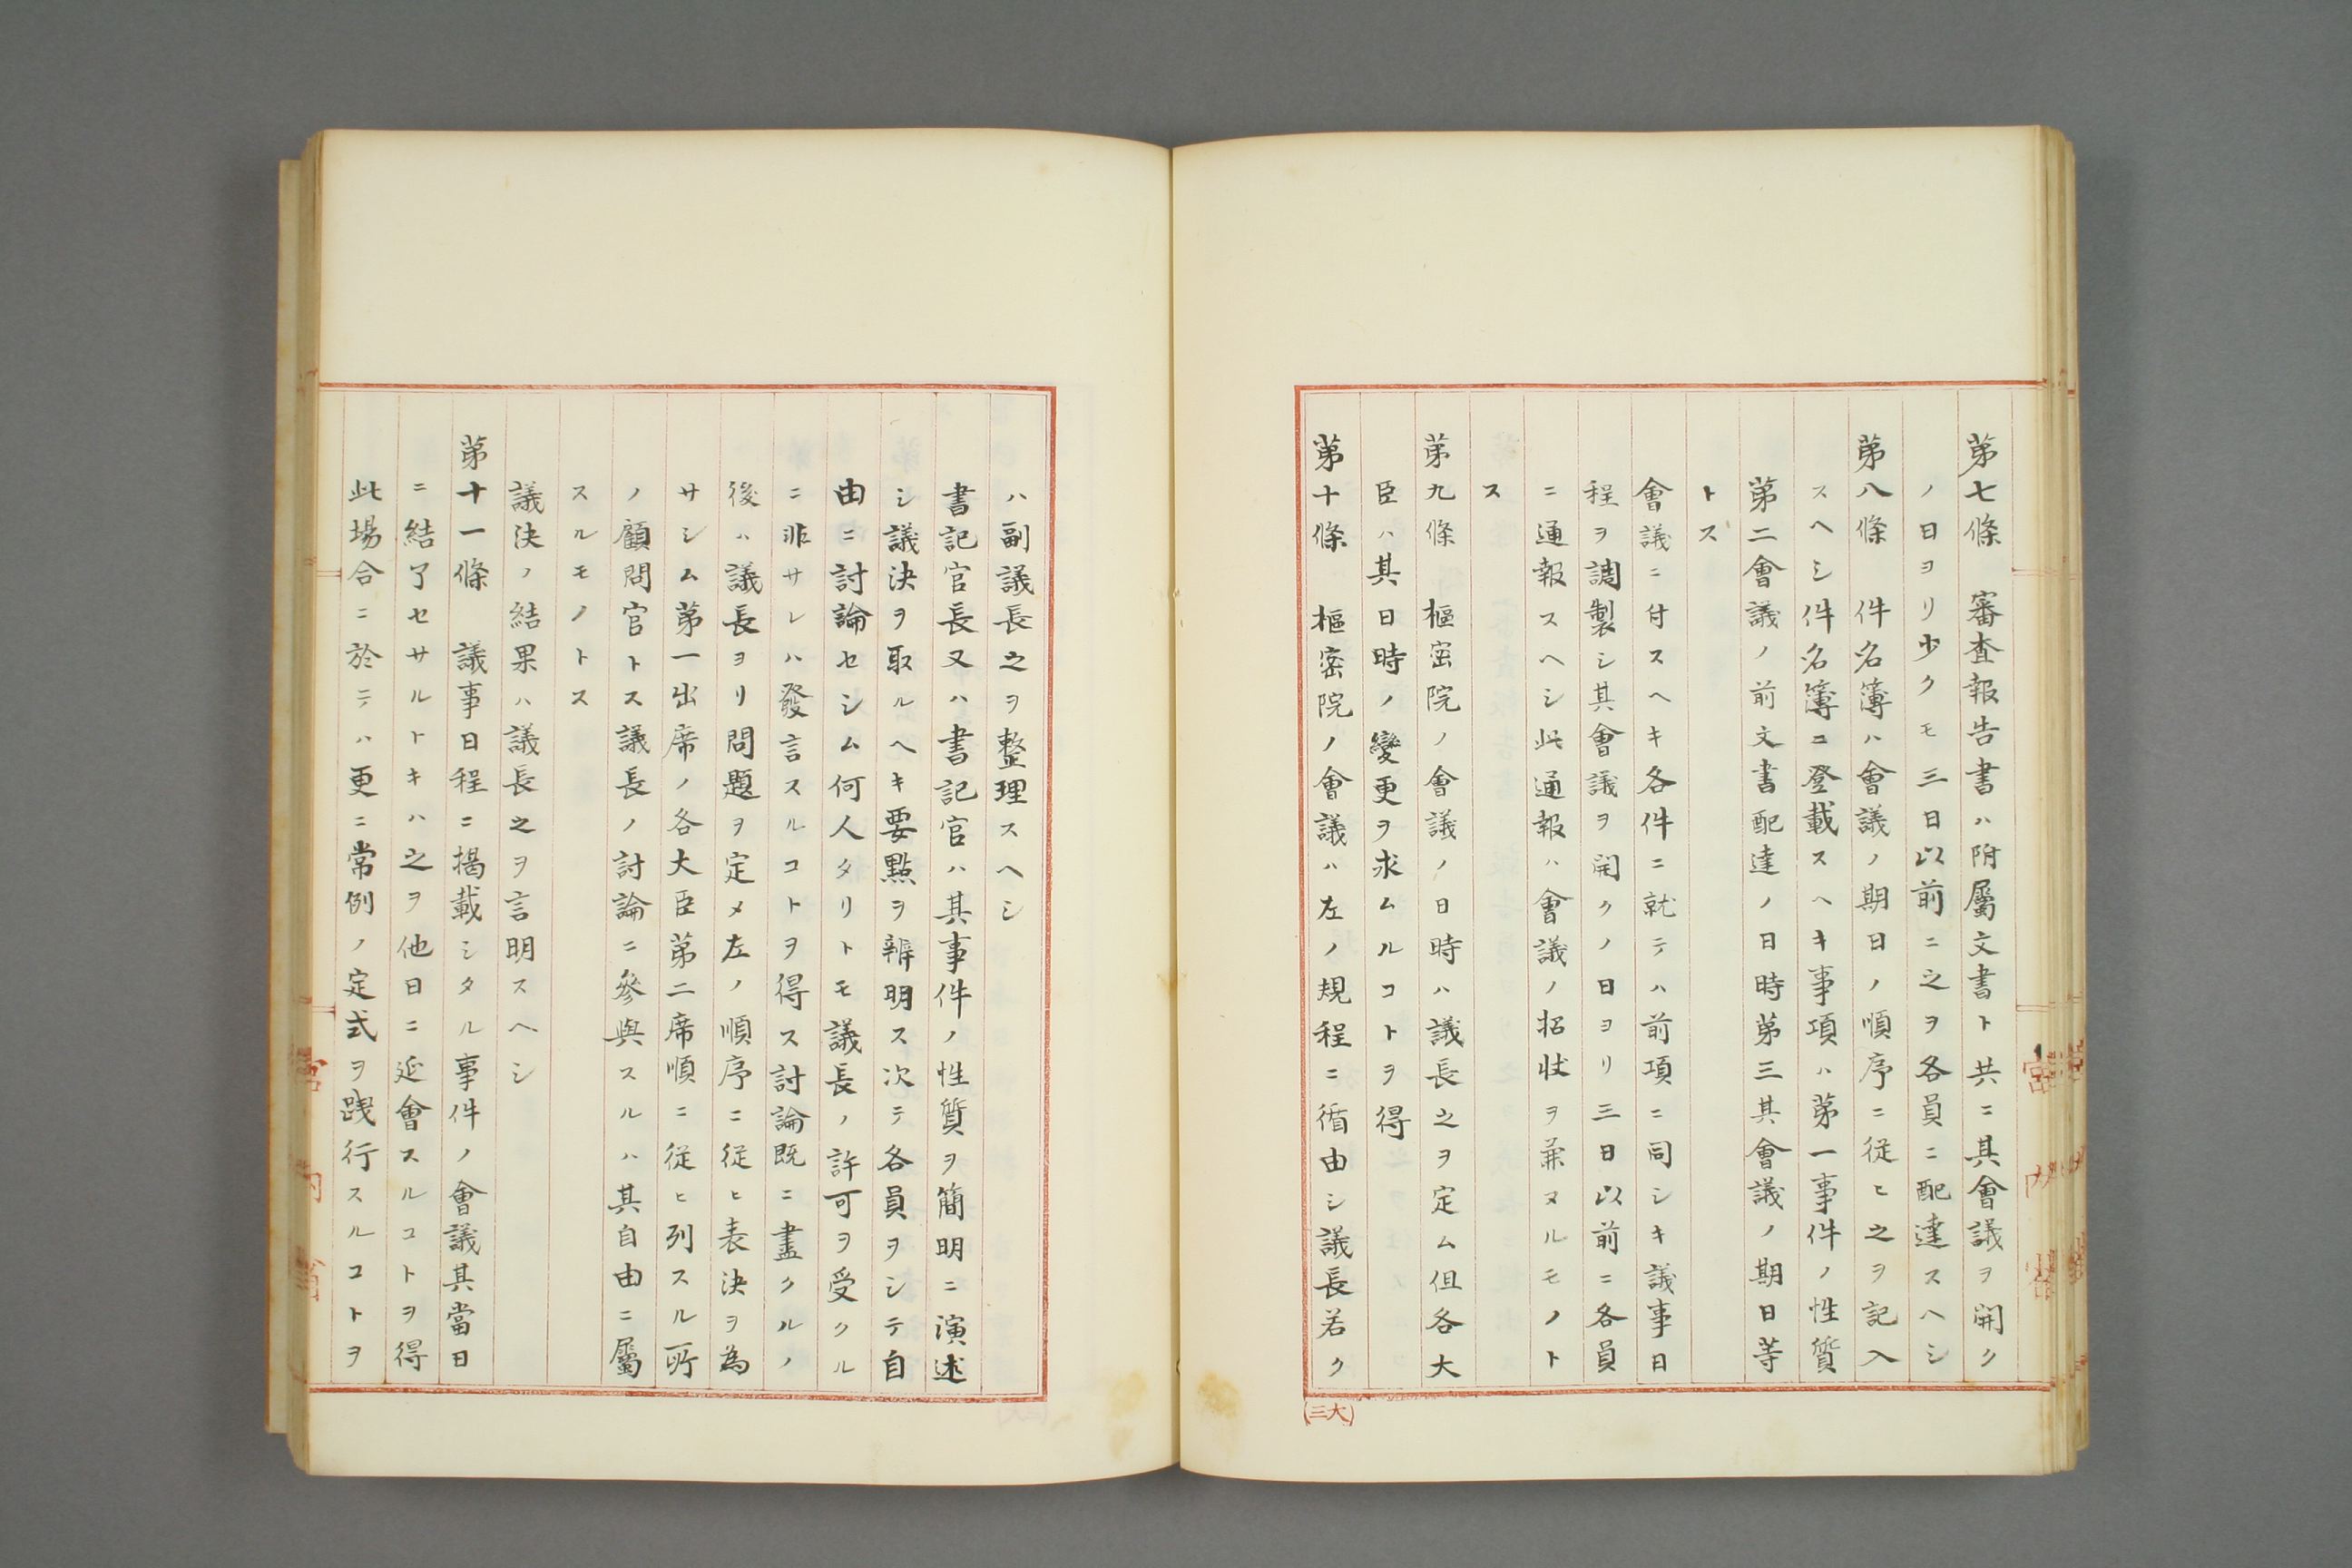 第七條　審査報告書ハ附屬文書ト共ニ其會議ヲ開ク
ノ日ヨリ少クモ三日以前ニ之ヲ各員ニ配達スヘシ
第八條　件名簿ハ會議ノ期日ノ順序ニ従ヒ之ヲ記入
スヘシ件名簿ニ登載スヘキ事項ハ第一事件ノ性質
第二會議ノ前文書配達ノ日時第三其會議ノ期日等
トス
會議ニ付スヘキ各件ニ就テハ前項ニ同シキ議事日
程ヲ調製シ其會議ヲ開クノ日ヨリ三日以前ニ各員
ニ通報スヘシ此通報ハ會議ノ招状ヲ兼ヌルモノト
ス
第九條　樞密院ノ會議ノ日時ハ議長之ヲ定ム但各大
臣ハ其日時ノ變更ヲ求ムルコトヲ得
第十條　樞密院ノ會議ハ左ノ規程ニ循由シ議長若ク
(大三)
ハ副議長之ヲ整理スヘシ
書記官長又ハ書記官ハ其事件ノ性質ヲ簡明ニ演述
シ議決ヲ取ルヘキ要點ヲ辨明ス次テ各員ヲシテ自
由ニ討論セシム何人タリトモ議長ノ許可ヲ受クル
ニ非サレハ發言スルコトヲ得ス討論既ニ盡クルノ
後ハ議長ヨリ問題ヲ定メ左ノ順序ニ従ヒ表決ヲ為
サシム第一出席ノ各大臣第二席順ニ従ヒ列スル所
ノ顧問官トス議長ノ討論ニ參與スルハ其自由ニ屬
スルモノトス
議決ノ結果ハ議長之ヲ言明スヘシ
第十一條　議事日程ニ掲載シタル事件ノ會議其當日
ニ結了セサルトキハ之ヲ他日ニ延會スルコトヲ得
此場合ニ於テハ更ニ常例ノ定式ヲ践行スルコトヲ
宮内省